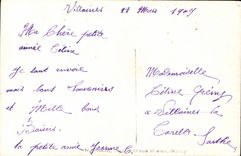 Villaines 22 Mars 1907
Ma Chère petite
amie Céline
Je tant envoie
mais bons Souvenirs
et Mille bons
Baisers
ta petite amie Jeanne
Mademoiselle
Céline
a Villaines la
Carelle
Sarthe